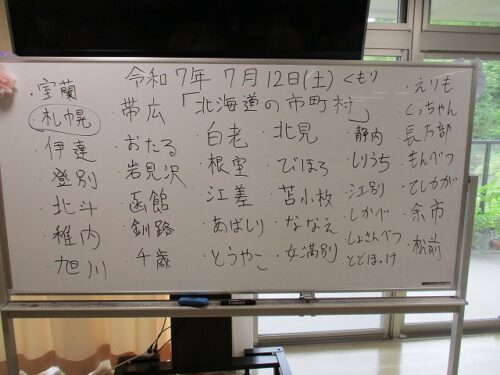 令和7年 7月12日(土) くもり
「北海道の市町村」
・室蘭
札幌
・伊達
・登別
・北斗
・稚内
・旭川
・帯広
・おたる
・岩見沢
・函館
・釧路
・千歳
・白老
・根室
・江差
・あばしり
・とうやこ
・北見
・びほろ
・苫小牧
・ななえ
・女満別
・静内
・しりうち
・江別
・しかべ
・しょさんべつ
・とどほっけ
・えりも
・くっちゃん
・長万部
・もんべつ
・てしかが
・余市
・松前